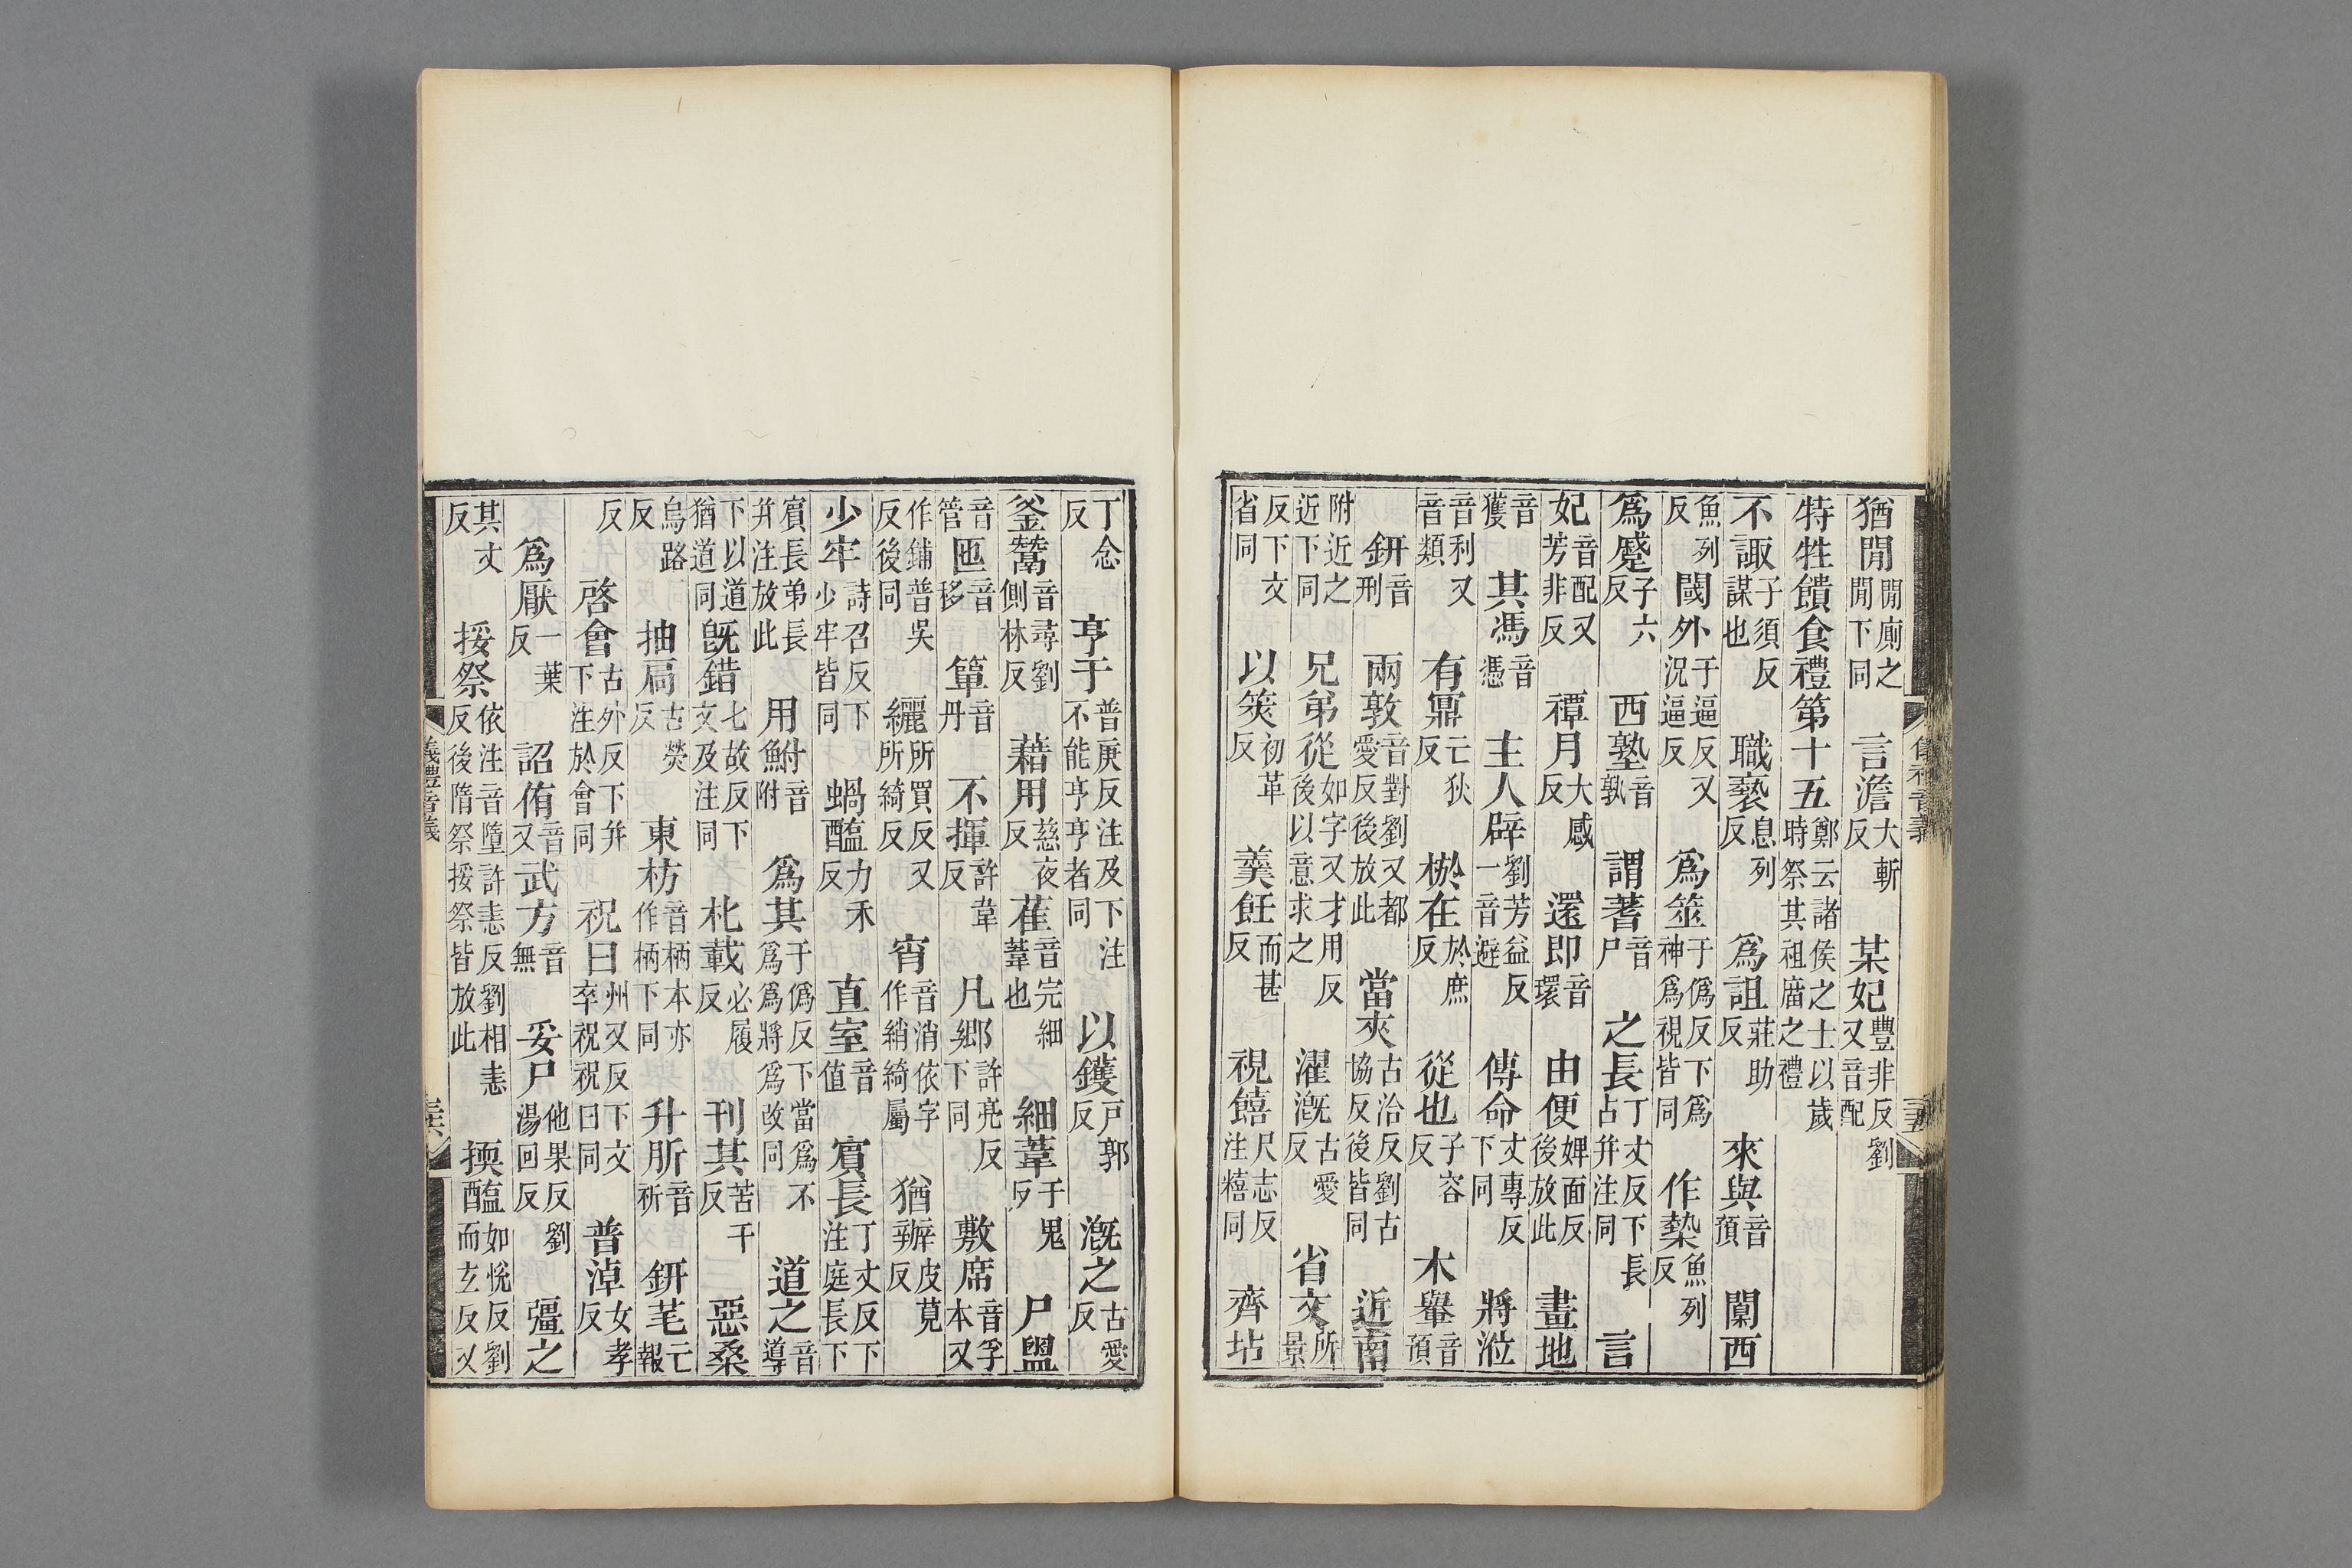 猶閒閒廁之閒下同 言澹大斬反 某妃豐非反劉又音配
特牲饋食禮第十五鄭云諸侯之士以歲時祭其祖庿之禮
不諏子須反謀也 職褻息列反 爲詛莊助反 來與音預 闑西
魚列反 閾外于逼反又況逼反 爲筮于僞反下爲神爲視皆同 作槷魚列反
爲蹙子六反 西塾音孰 謂蓍音尸 之長丁丈反下長占并注同 言
妃音配又芳非反 禫月大感反 還即音環 由便婢面反後放此 畫地
音獲 其馮音憑 主人辟劉芳益反一音避 傳命丈專反下同 將涖
音利又音類 有鼏亡狄反 棜在於庶反 從也子容反 木轝音預
鈃音刑 兩敦音對劉又都愛反後放此 當夾古洽反劉古協反後皆同 近南
附近之近下同 兄弟從如字又才用反後以意求之 濯漑古愛反 省文所景
反下文省同 以筴初革反 羹飪而甚反 視饎尺志反注糦同 齊坫
丁念反 亨于普庚反注及下注不能亨亨者同 以鑊戶郭反 漑之古愛反
釜鬵音尋劉側林反 藉用慈夜反 萑音完細葦也 細葦于鬼反 尸盥
音管 匜音移 簞音丹 不揮許韋反 凡鄉許亮反下同 敷席音孚本又
作鋪普吳反後同 纚所買反又所綺反 宵音消依字作綃綺屬 猶辦皮莧反
少牢詩召反下少牢皆同 蝸醢力禾反 直室音值 賔長丁丈反下注庭長下
賔長弟長并注放此 用鮒音附 爲其于僞反下當爲不爲爲將爲改同 道之音導
下以道猶道同 旣錯七故反下文及注同 朼載必履反 刊其苦干反 惡桑
烏路反 抽扃古熒反 東枋音柄本亦作柄下同 升肵音祈 鈃芼亡報
反 啓會古外反下并下注於會同 祝曰州又反下文卒祝祝曰同 普淖女孝反
爲厭一葉反 詔侑音又 武方音無 妥尸他果反劉湯回反 彊之
其丈反 挼祭依注音墮許恚反劉相恚反後隋祭挼祭皆放此 擩醢如悅反劉而玄反又
儀禮音義
三十六